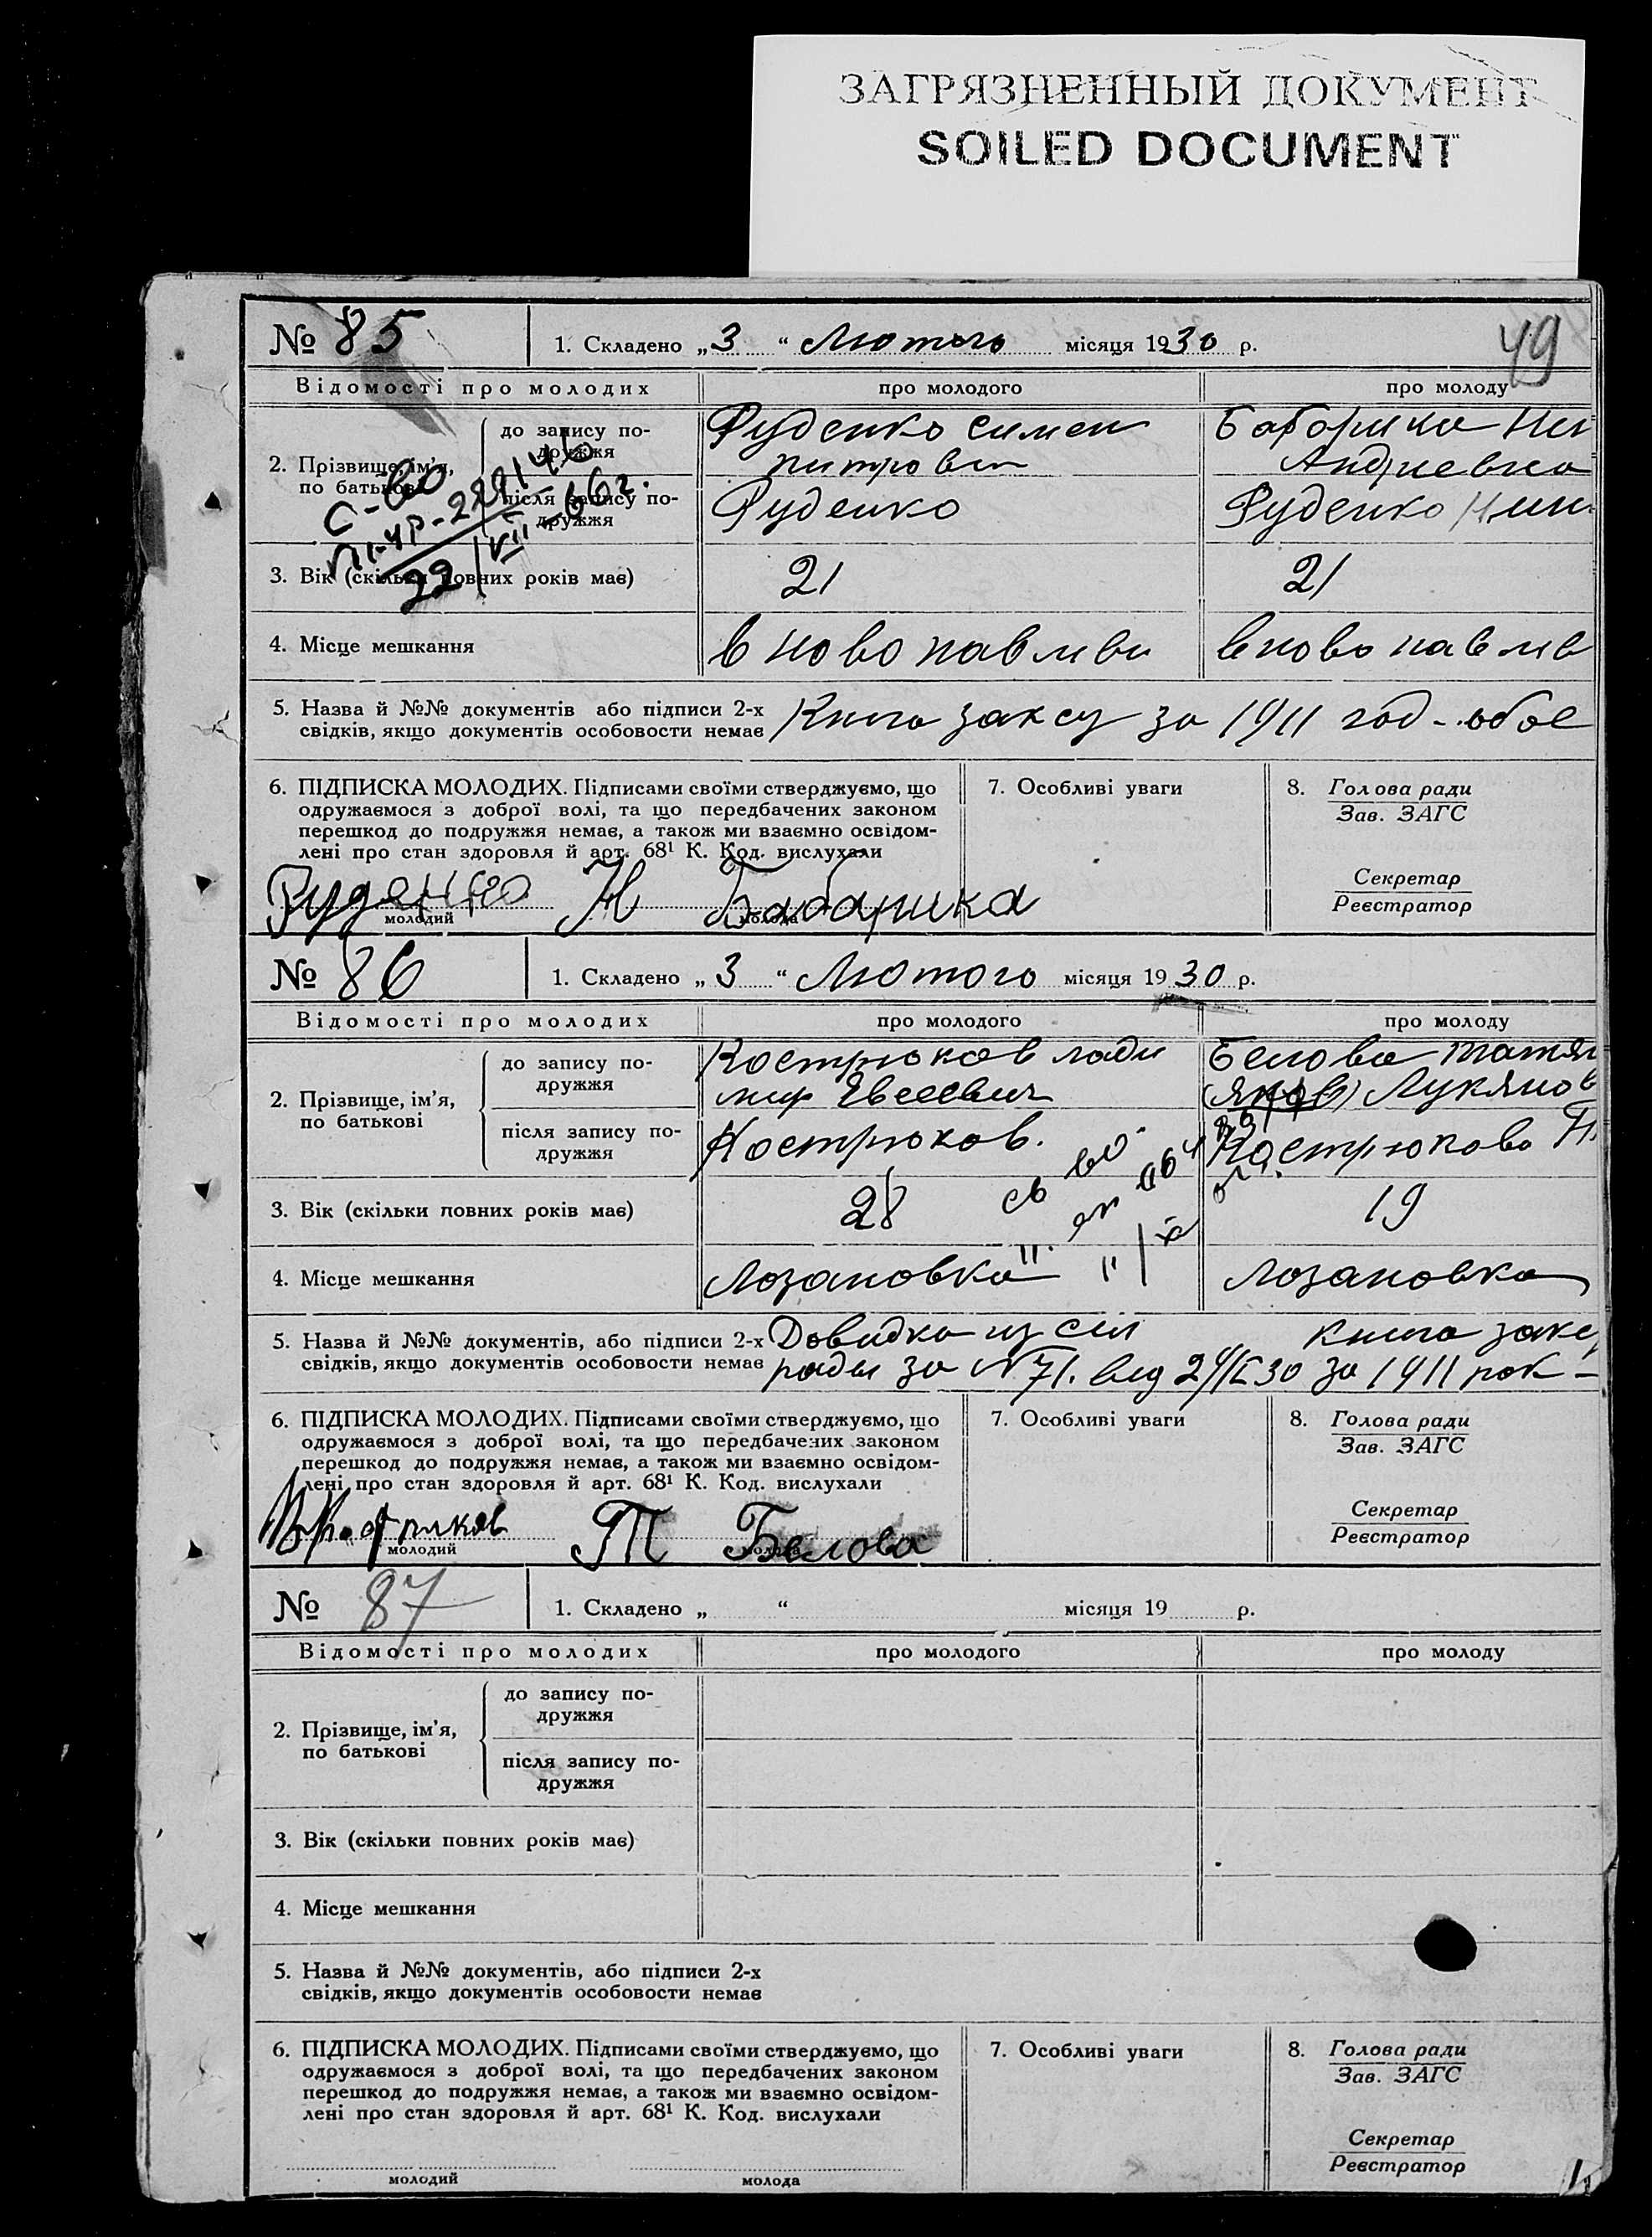 ЗАГРЯЗНЕННЫЙ ДОКУМЕНТ
SOILED DOCUMENT
49
№ 85
1. Складено „3“ Лютого місяця 1930 р.
Відомості про молодих
про молодого
про молоду
2. Прізвище, ім'я, по батькові
до запису по-
дружжя
Руденко Симен
питрович
Бабарика
Андриевна
після запису по-
дружжя
Руденко
Руденко Нин
3. Вік (скільки повних років має)
21
21
4. Місце мешкання
в ново павливи
в ново павлив
5. Назва й №№ документів або підписи 2-х
свідків, якщо документів особовости немає
Книга заксу за 1911 год - обое
6. ПІДПИСКА МОЛОДИХ. Підписами своїми стверджуємо, що
одружаємося з доброї волі, та що передбачених законом
перешкод до подружжя немає, а також ми взаємно освідом-
лені про стан здоровля й арт. 68¹ К. Код. вислухали
Руденко Н Бабарика
молодий
молода
7. Особливі уваги
8. Голова ради
Зав. ЗАГС
Секретар
Реєстратор
№ 86
1. Складено „3“ Лютого місяця 1930 р.
Відомості про молодих
про молодого
про молоду
2. Прізвище, ім'я,
по батькові
до запису по-
дружжя
Кострюков лади
мир Евсеевич
Белова татян
Лукянов
після запису по-
дружжя
Кострюков.
Кострюкова
3. Вік (скільки повних років має)
28
19
4. Місце мешкання
Лозановка
Лозановка
5. Назва й №№ документів, або підписи 2-х
свідків, якщо документів особовости немає
Довидка из сил
рады за №71.
книга закс
за 1911 рок -
6. ПІДПИСКА МОЛОДИХ. Підписами своїми стверджуємо, що
одружаємося з доброї волі, та що передбачених законом
перешкод до подружжя немає, а також ми взаємно освідом-
лені про стан здоровля й арт. 68¹ К. Код. вислухали
Т Белова
молодий
молода
7. Особливі уваги
8. Голова ради
Зав. ЗАГС
Секретар
Реєстратор
№ 87
1. Складено „ “ місяця 19 р.
Відомості про молодих
про молодого
про молоду
2. Прізвище, ім'я,
по батькові
до запису по-
дружжя
після запису по-
дружжя
3. Вік (скільки повних років має)
4. Місце мешкання
5. Назва й №№ документів, або підписи 2-х
свідків, якщо документів особовости немає
6. ПІДПИСКА МОЛОДИХ. Підписами своїми стверджуємо, що
одружаємося з доброї волі, та що передбачених законом
перешкод до подружжя немає, а також ми взаємно освідом-
лені про стан здоровля й арт. 68¹ К. Код. вислухали
молодий
молода
7. Особливі уваги
8. Голова ради
Зав. ЗАГС
Секретар
Реєстратор